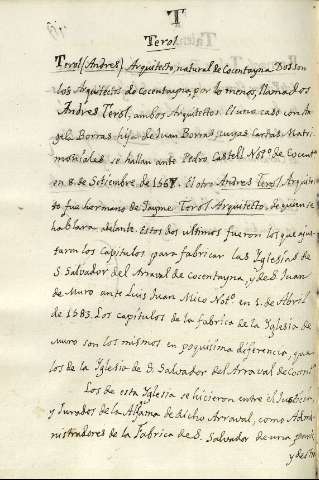 T
Terol
Terol (Andres) Arquitecto, natural de Cocentayna Dos son
los Arquitectos de Cocentayna, por lo menos, llamados
Andres Terol, ambos Arquitectos. El uno casó con An
gela Borras hija de Juan Borras, cuyas Cartas Matri
moniales se hallan ante Pedro Castell Notº. de Cocentª.
en 8. de Setiembre de 1567. El otro Andres Terol, Arquitec
to fue hermano de Jayme Terol Arquitecto, de quien se
hablara adelante. Estos dos ultimos fueron los que ajus
taron los Capitulos para fabricar las Yglesias de
S. Salvador del Arraval de Cocentayna, y de S. Juan
de Muro ante Luis Juan Mico Notº. en 1. de Abril
de 1583. Los capitulos de la fabrica de la Yglesia de
Muro son los mismos en poquisima diferencia, que
los de la Yglesia de S. Salvador del Arraval de Cocentª.
Los de esta Yglesia se hicieron entre el Justicia,
y Jurados de la Aljama de dicho Arraval, como Admi
nistradores de la Fabrica de S. Salvador de una parte,